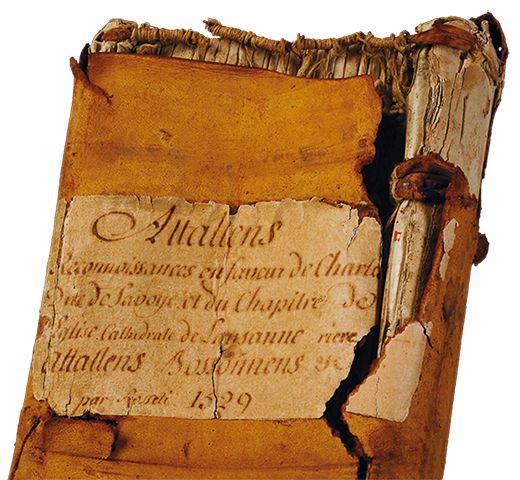 Attaliens
Reconnoissances en faveur de Charle
Duc de Savoye, et du Chapitre de
l'Eglise Cathedrale de Lausanne riere
attallens Bossonnens &c
par 1529